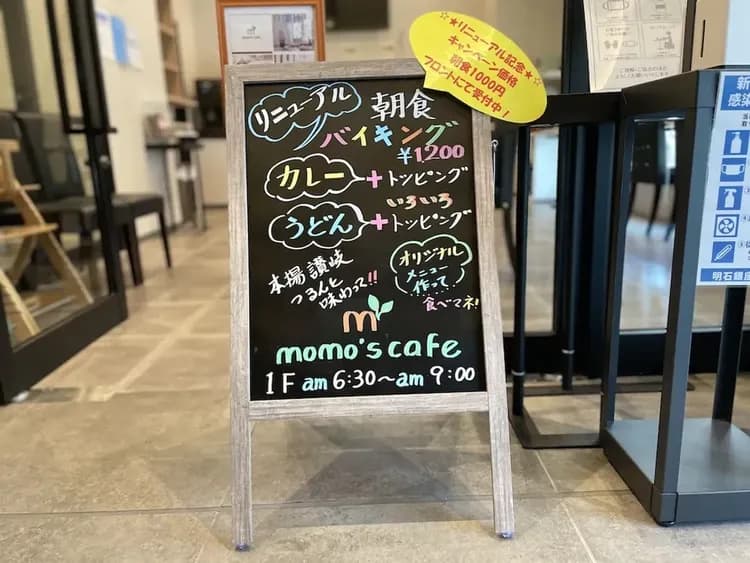 ★リニューアル記念★
キャンペーン価格
朝食1000円
フロントにて受付中!
リニューアル
朝食
バイキング
¥1,200
カレー+トッピング
いろいろ
うどん+トッピング
本場讃岐
つるんと
味わって!!
オリジナル
メニュー
作って
食べてネ!
momo's cafe
1F am 6:30~am 9:00
新
感染
明石銀座